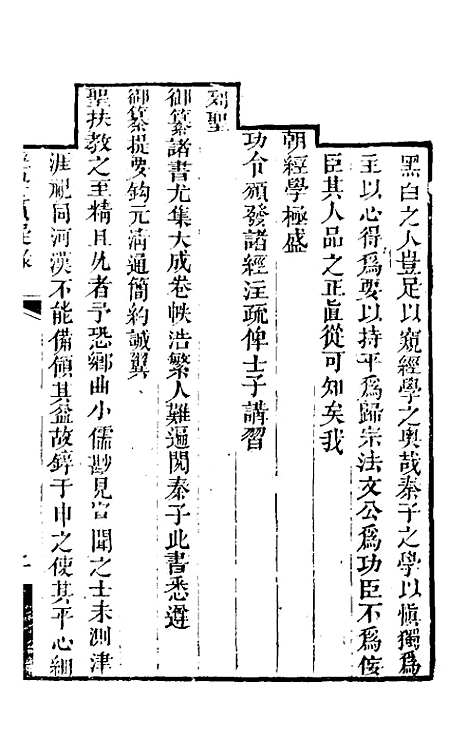 黑白之人豈足以窺經學之奥哉秦子之學以愼獨爲
主以心得爲要以持平爲歸宗法文公爲功臣不爲侫
臣其人品之正眞從可知矣我
朝經學極盛
功令頒發諸經注疏俾士子講習
列聖
御纂諸書尤集大成卷帙浩繁人難遍閱秦子此書悉遵
御纂提要鈎元淸通簡約誠翼
聖扶教之至精且凢者予恐鄉曲小儒尠見寡聞之士未測津
涯視同河漢不能備領其益故鋅于申之使其平心細